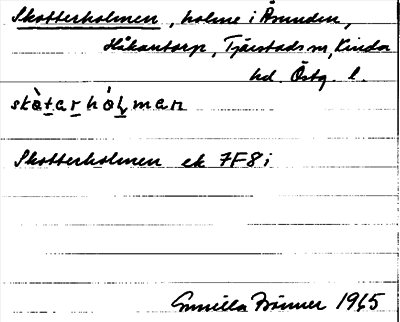 Skotterholmen, holme i Åsunden,
Håkantorp, Tjärstads sn, Kinda
hd. Östg. l.
skòt̲ar̲hól̲man
Skotterholmen ek 7F8i
Gunilla 1965